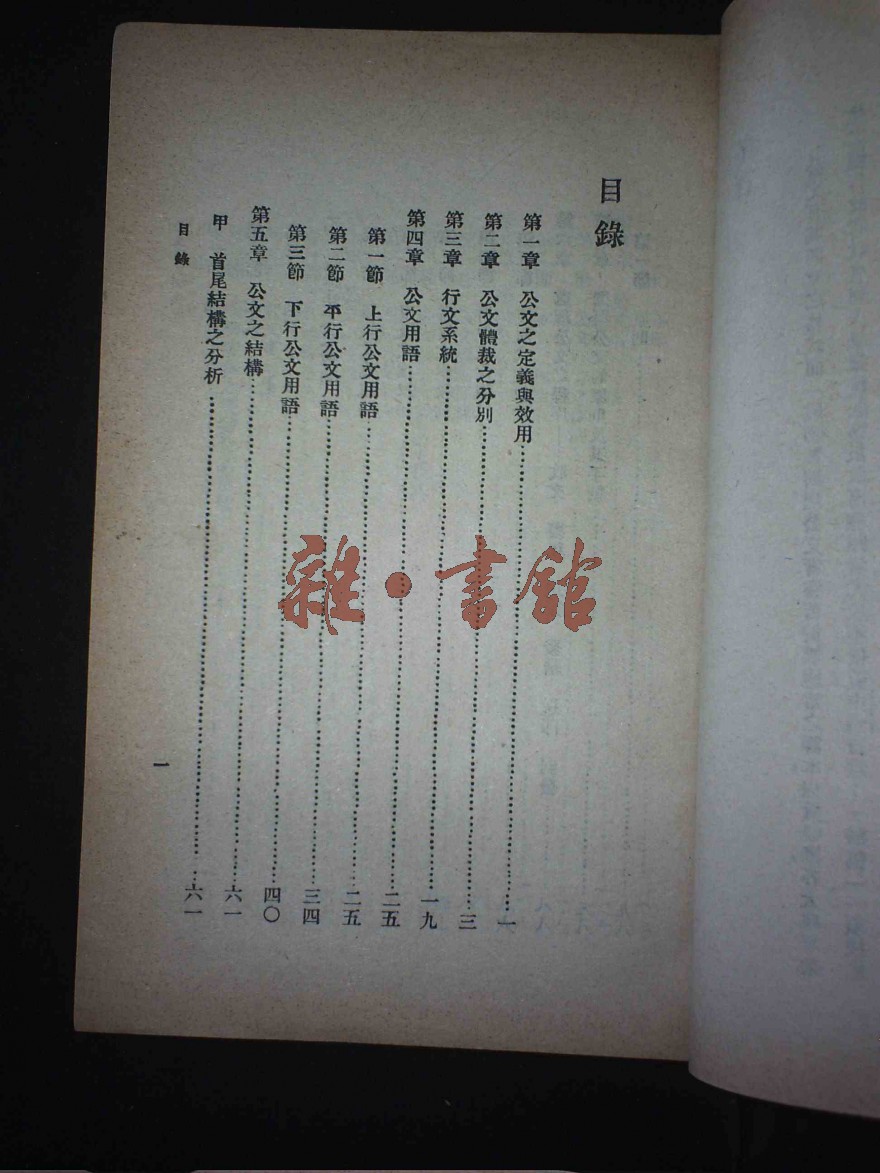 目錄
第一章　公文之定義與效用……一
第二章　公文體裁之分別……三
第三章　行文系統……一九
第四章　公文用語……二五
第一節　上行公文用語……二五
第二節　平行公文用語……三四
第三節　下行公文用語……四〇
第五章　公文之結構……六一
甲　首尾結構之分析……六一
目錄
一
雜·書館